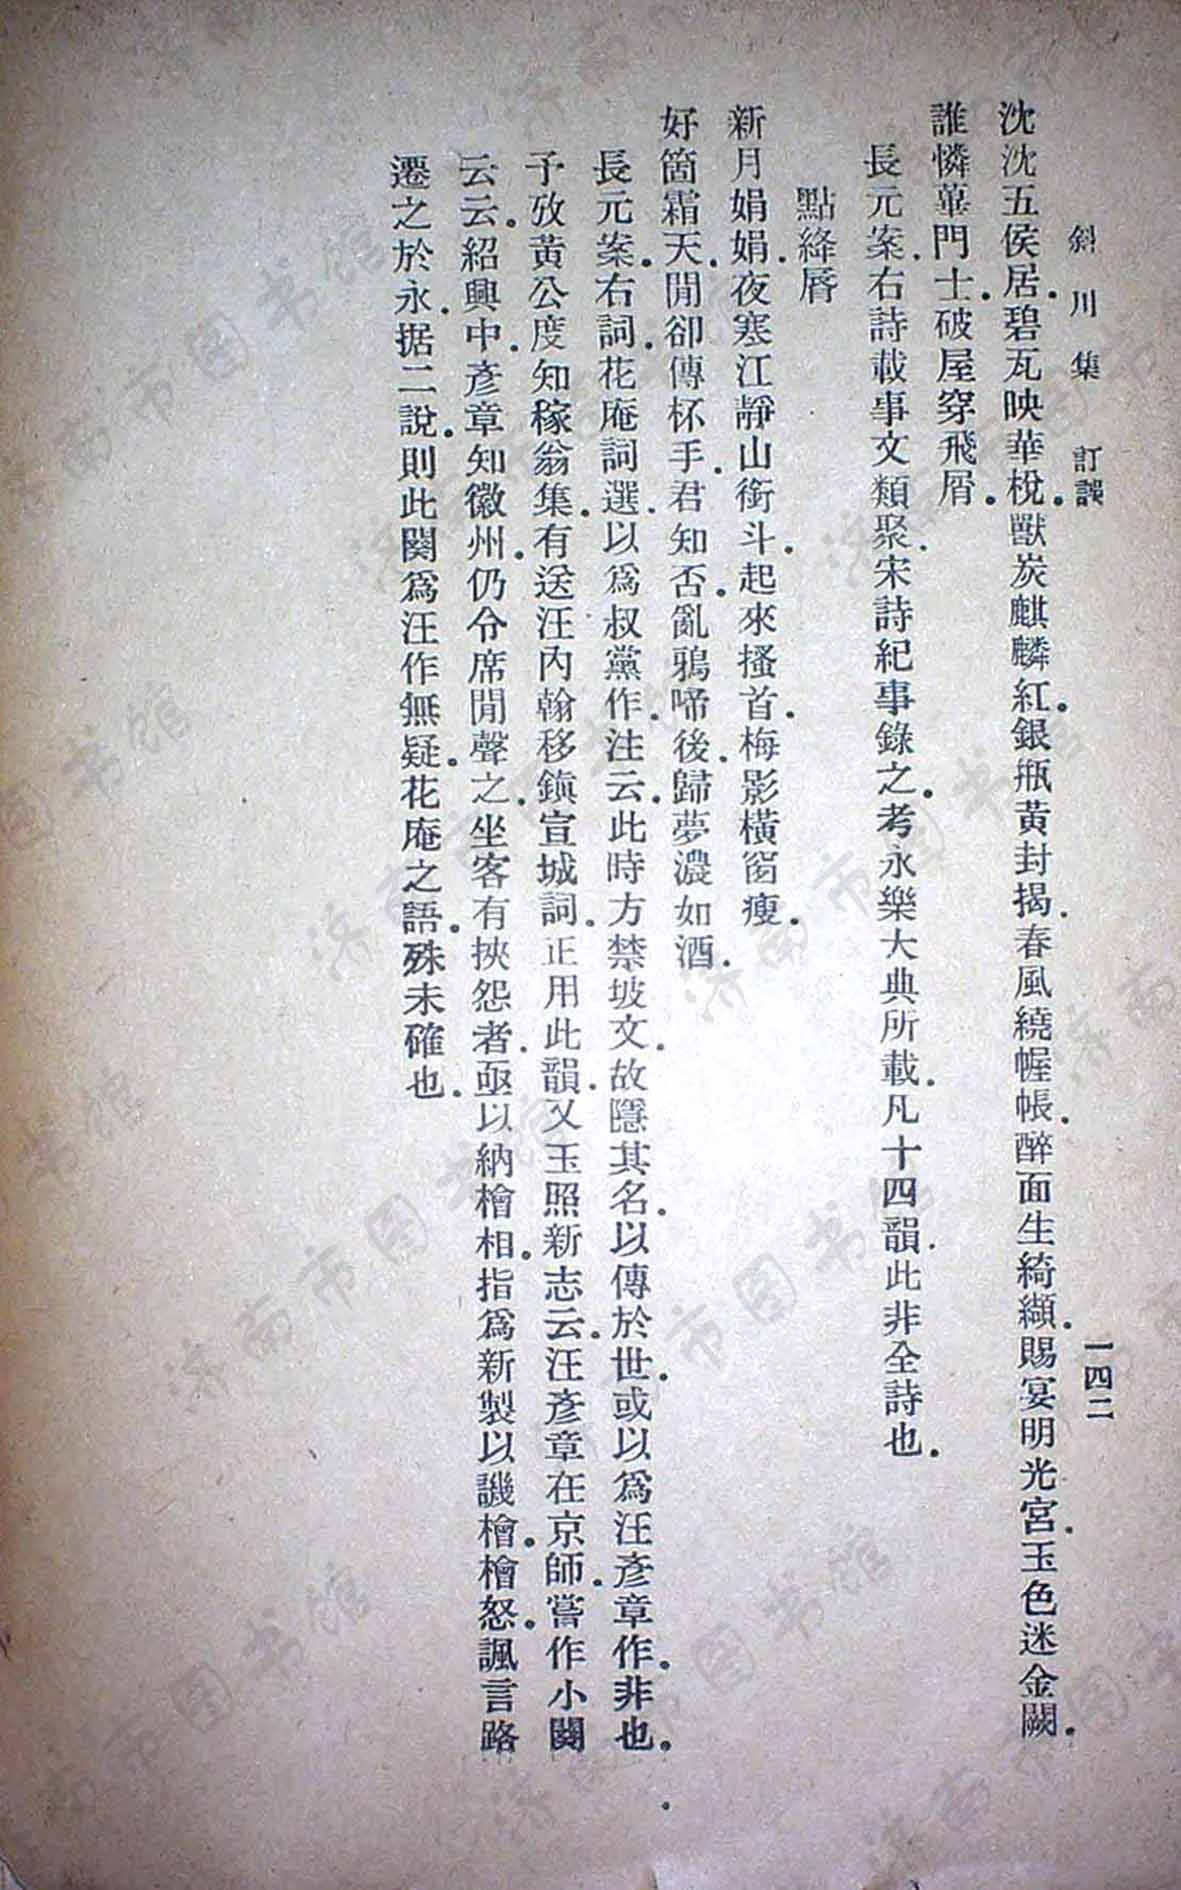 斜川集 訂誤 一四二
沈沈五侯居.碧瓦映華梲.獸炭麒麟紅.銀瓶黃封揭.春風繞幄帳.醉面生綺纈.賜宴明光宮.玉色迷金闕.
誰憐蓽門士.破屋穿飛屑.
長元案.右詩載事文類聚.宋詩紀事錄之.考永樂大典所載.凡十四韻.此非全詩也.
點絳脣
新月娟娟.夜寒江靜山銜斗.起來搔首.梅影橫窗瘦.
好箇霜天.閒卻傳杯手.君知否.亂鴉啼後.歸夢濃如酒.
長元案.右詞.花庵詞選.以爲叔黨作.注云.此時方禁坡文.故隱其名.以傳於世.或以爲汪彥章作.非也.
予攷黃公度知稼翁集.有送汪內翰移鎮宣城詞.正用此韻.又玉照新志云.汪彥章在京師.嘗作小闋
云云.紹興中.彥章知徽州.仍令席閒聲之.坐客有挾怨者.亟以納檜相.指爲新製以譏檜.檜怒.諷言路
遷之於永.据二說.則此闋爲汪作無疑.花庵之語.殊未確也.
济南市图书馆